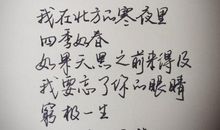 我在北方的寒夜里
四季如春
如果天黑之前来得及
我要忘了你的眼睛
窮极一生